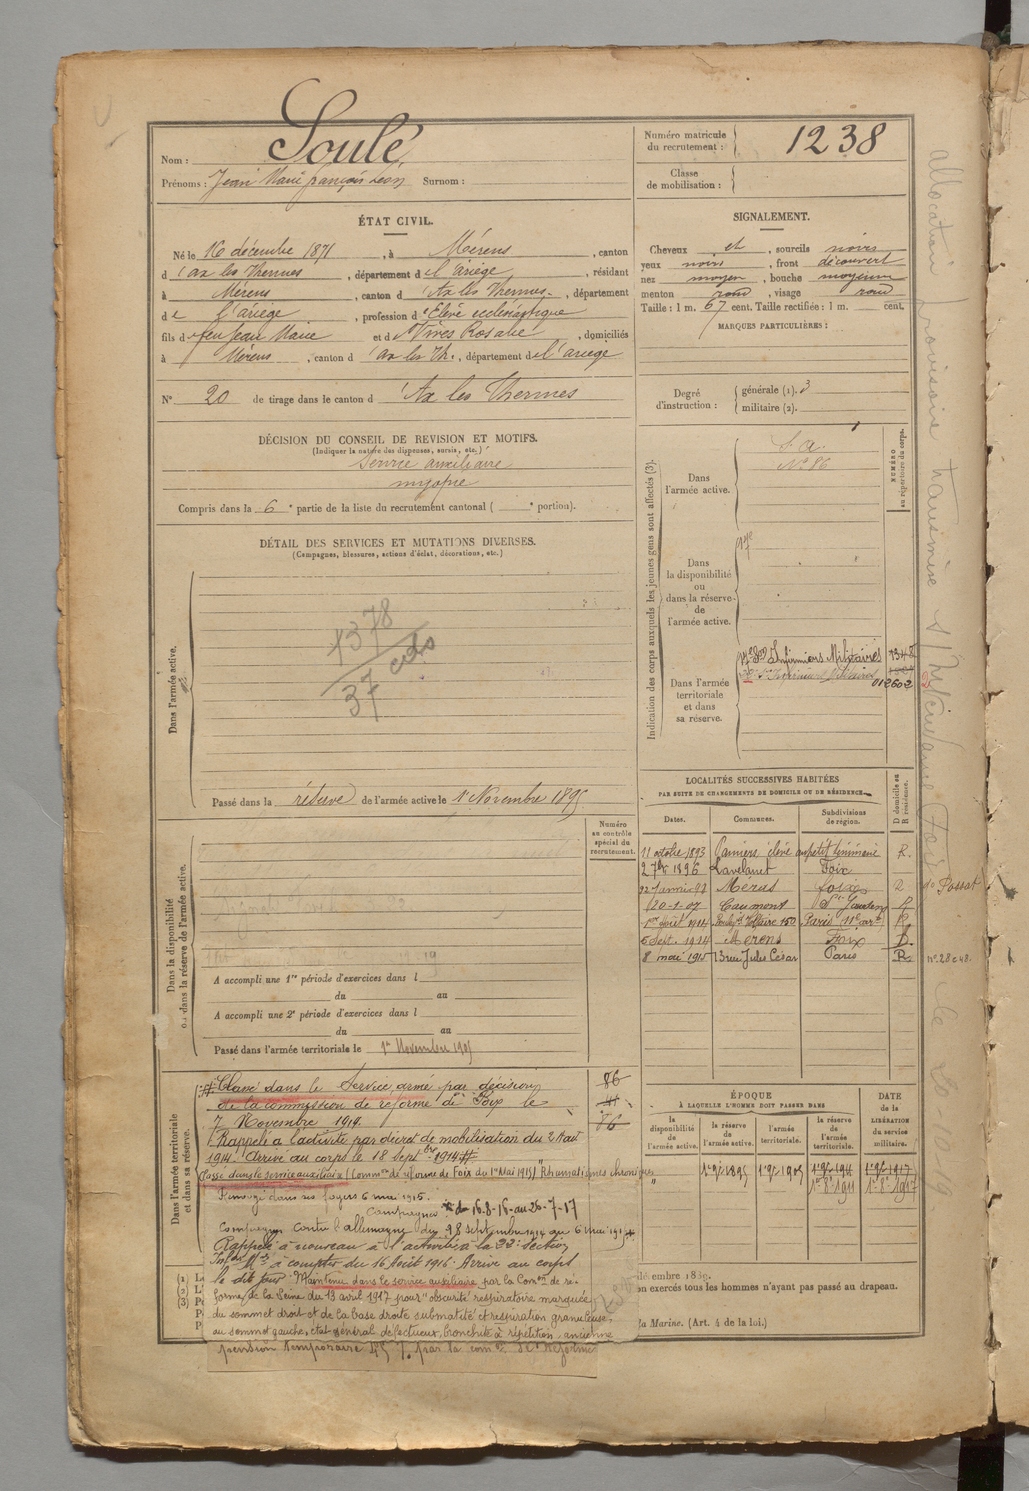 Nom : Soulé
Prénoms : Jean Marie françois Léon Surnom :
Numéro matricule du recrutement : 1238
Classe de mobilisation :
ÉTAT CIVIL.
Né le 16 décembre 1871, à Mérens, canton
d'ax les Thermes, département de l'ariège, résidant
à Mérens, canton d'Ax les Thermes, département
de l'ariège, profession d'Elève ecclésiastique
fils de feu Jean Marie et de Vives Rosalie, domiciliés
à Mérens, canton d'ax les Th., département de l'ariege
N° 20 de tirage dans le canton d'Ax les Thermes
SIGNALEMENT.
Cheveux et, sourcils noirs
yeux noirs, front découvert
nez moyen, bouche moyenne
menton rond, visage rond
Taille : 1 m. 67 cent. Taille rectifiée : 1 m. cent.
MARQUES PARTICULIÈRES :
Degré d'instruction : générale (1). 3
militaire (2).
DÉCISION DU CONSEIL DE REVISION ET MOTIFS.
(Indiquer la nature des dispenses, sursis, etc.)
Service auxiliaire
myopie
Compris dans la 6e partie de la liste du recrutement cantonal ( e portion).
DÉTAIL DES SERVICES ET MUTATIONS DIVERSES.
(Campagnes, blessures, actions d'éclat, décorations, etc.)
Dans l'armée active.
1378
37
Passé dans la réserve de l'armée active le 1er Novembre 1895
Indication des corps auxquels les jeunes gens sont affectés (3).
NUMÉRO au répertoire du corps.
Dans l'armée active.
S. A.
N° 86
Dans la disponibilité ou dans la réserve de l'armée active.
Dans l'armée territoriale et dans sa réserve.
Infirmiers Militaires
012602
LOCALITÉS SUCCESSIVES HABITÉES
PAR SUITE DE CHANGEMENTS DE DOMICILE OU DE RÉSIDENCE.
Dates. Communes. Subdivisions de région. D domicile ou R résidence.
11 octobre 1893 Pamiers élève au petit séminaire R.
2 7bre 1896 Lavelanet Foix
22 Janvier 97 Merus foix
20-1-07 Caumont St Gaudens R
1er Août 1914 Boulevd Voltaire 150 Paris 11e arrt R
5 Sept. 1914 Merens Foix D.
8 mai 1915 13 rue Jules César Paris R
Dans la disponibilité ou dans la réserve de l'armée active.
Numéro au contrôle spécial du recrutement.
A accompli une 1re période d'exercices dans l
du au
A accompli une 2e période d'exercices dans l
du au
Passé dans l'armée territoriale le 1er Novembre 1905
Dans l'armée territoriale et dans sa réserve.
Classé dans le Service armé par décision
de la commission de réforme de Foix le
7 Novembre 1914.
Rappelé à l'activité par décret de mobilisation du 2 Août
1914. Arrivé au corps le 18 Septbre 1914
Passé dans le service auxiliaire (Common de réforme de Foix du 1er Mai 1915) "Rhumatismes chroniques"
Renvoyé dans ses foyers 6 mai 1915.
Campagnes 16-8-16 au 26-7-17
Campagne contre l'allemagne du 18 septembre 1914 au 6 mai 1915
Rappelé à nouveau à l'activité à la 22e section
Infirs Mres à compter du 16 Août 1916. Arrivé au corps
le dit jour. Maintenu dans le service auxiliaire par la Comon de ré-
forme de la Seine du 13 avril 1917 pour "obscurité respiratoire marquée
du sommet droit et de la base droite submatité et respiration granuleuse,
au sommet gauche, état général défectueux, bronchite à répétition ancienne
pension temporaire par la comon de Réforme
86
86
ÉPOQUE
À LAQUELLE L'HOMME DOIT PASSER DANS
la disponibilité de l'armée active. la réserve de l'armée active. l'armée territoriale. la réserve de l'armée territoriale. DATE de la LIBÉRATION du service militaire.
1er 9bre 1895 1er 9bre 1905 1er 9bre 1911 1er 9bre 1917
1er 8bre 1911 1er 8bre 1917
décembre 1889.
on exercés tous les hommes n'ayant pas passé au drapeau.
la Marine. (Art. 4 de la loi.)
allocation provisoire transmise à l'Intendance Foix le
n° 28 e 48.